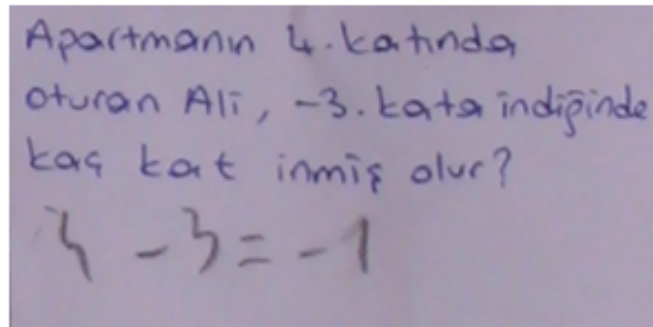 Apartmanın 4. katında
oturan Ali, -3. kata indiğinde
kaç kat inmiş olur?
4 - 3 = - 1